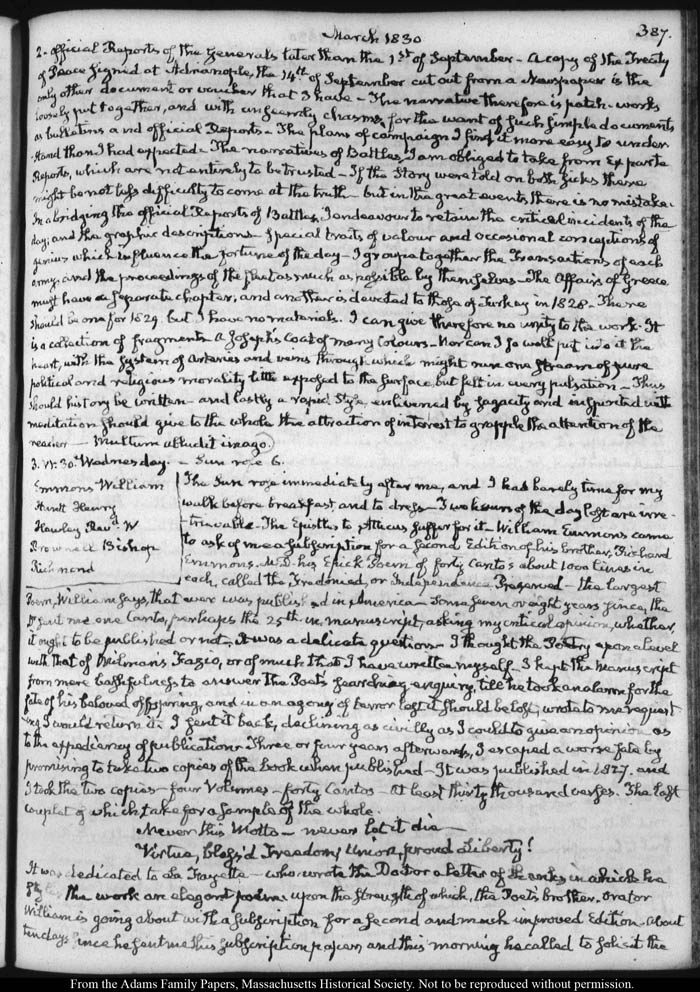 March 1830
387.
2. Official Reports of the Generals later than the 1st of September - A copy of the Treaty
of Peace signed at Adrianople, the 14th of September cut out from a Newspaper is the
only other document or voucher that I have - The narrative therefore is patch-work
loosely put together, and with unseemly chasms for the want of such simple documents
as bulletins and official Reports - The plans of campaign I find it more easy to under-
-stand than I had expected - The narratives of Battles, I am obliged to take from Ex parte
Reports, which are not entirely to be trusted - If the Story were told on both sides there
might be not less difficulty to come at the truth - but in the great events there is no mistake.
In abridging the official Reports of Battles, I endeavour to retain the critical incidents of the
day; and the graphic descriptions - Special traits of valour and occasional conceptions of
genius which influence the fortune of the day - I group together the Transactions of each
army, and the proceedings of the fleet as much as possible by themselves - The Affairs of Greece
must have a separate chapter, and another is devoted to those of Turkey in 1828 - There
should be one for 1829. but I have no materials. I can give therefore no unity to the work. It
is a collection of fragments A Joseph's Coat of many Colours - Nor can I so well put into it the
heart, with the system of arteries and veins through which might run one stream of pure
political and religious morality little exposed to the surface, but felt in every pulsation - Thus
should history be written - and lastly a rapid style enlivened by sagacity and inspirited with
meditation should give to the whole the attraction of interest to grapple the attention of the
reader - Multum alludit imago.
3. IV: 30. Wednesday. - Sun rose 6.
Emmons William
Huntt Henry
Hawley Revd. W
Brownell Bishop
Richmond
The Sun rose immediately after me, and I had barely time for my
walk before breakfast, and to dress - Two hours of the day lost are irre-
-trievable - The Epistles to Atticus suffer for it - William Emmons came
to ask of me a subscription for a second Edition of his brother, Richard
Emmons. M.D. his Epick Poem of forty Cantos about 1000 lines in
each, called the Fredoniad, or Independence Preserved - the largest
Poem, William says, that ever was published in America - Some seven or eight years since, the
Dr. sent me one Canto, perhaps the 25th. in manuscript, asking my critical opinion, whether,
it ought to be published or not. It was a delicate question - I thought the Poetry upon a level
with that of Milman's Fazio, or of much that I have written myself. I kept the Manuscript
from mere bashfulness to answer the Poet's searching enquiry, till he took an alarm for the
fate of his beloved offspring, and in an agony of terror lest it should be lost, wrote to me request-
-ing I would return it. I sent it back, declining as civilly as I could to give an opinion as
to the expediency of publication. Three or four years afterwards, I escaped a worse fate by
promising to take two copies of the book when published - It was published in 1827. and
I took the two copies - four Volumes - forty Cantos - at least thirty thousand verses. The last
couplet of which take for a sample of the whole.
Never this Motto - never let it die -
Virtue, bless'd Freedom, Union, proud Liberty!
It was dedicated to La Fayette - who wrote the Doctor a letter of thanks in which he
the work an elegant poem upon the strength of which, the Poet's brother. orator
William is going about with a subscription for a second and much improved Edition. About
ten days since he sent me this subscription paper, and this morning he called to solicit the
From the Adams Family Papers, Massachusetts Historical Society. Not to be reproduced without permission.